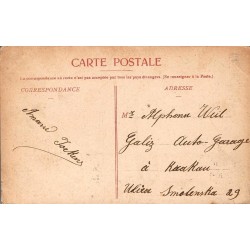 CARTE POSTALE
La correspondance au recto n'est pas acceptée par tous les pays étrangers. (Se renseigner à la Poste.)
CORRESPONDANCE
ADRESSE
Mr Alphonse Weil
Galiz Auto-Garage
à Kraukau
Ulica Smolenska 29